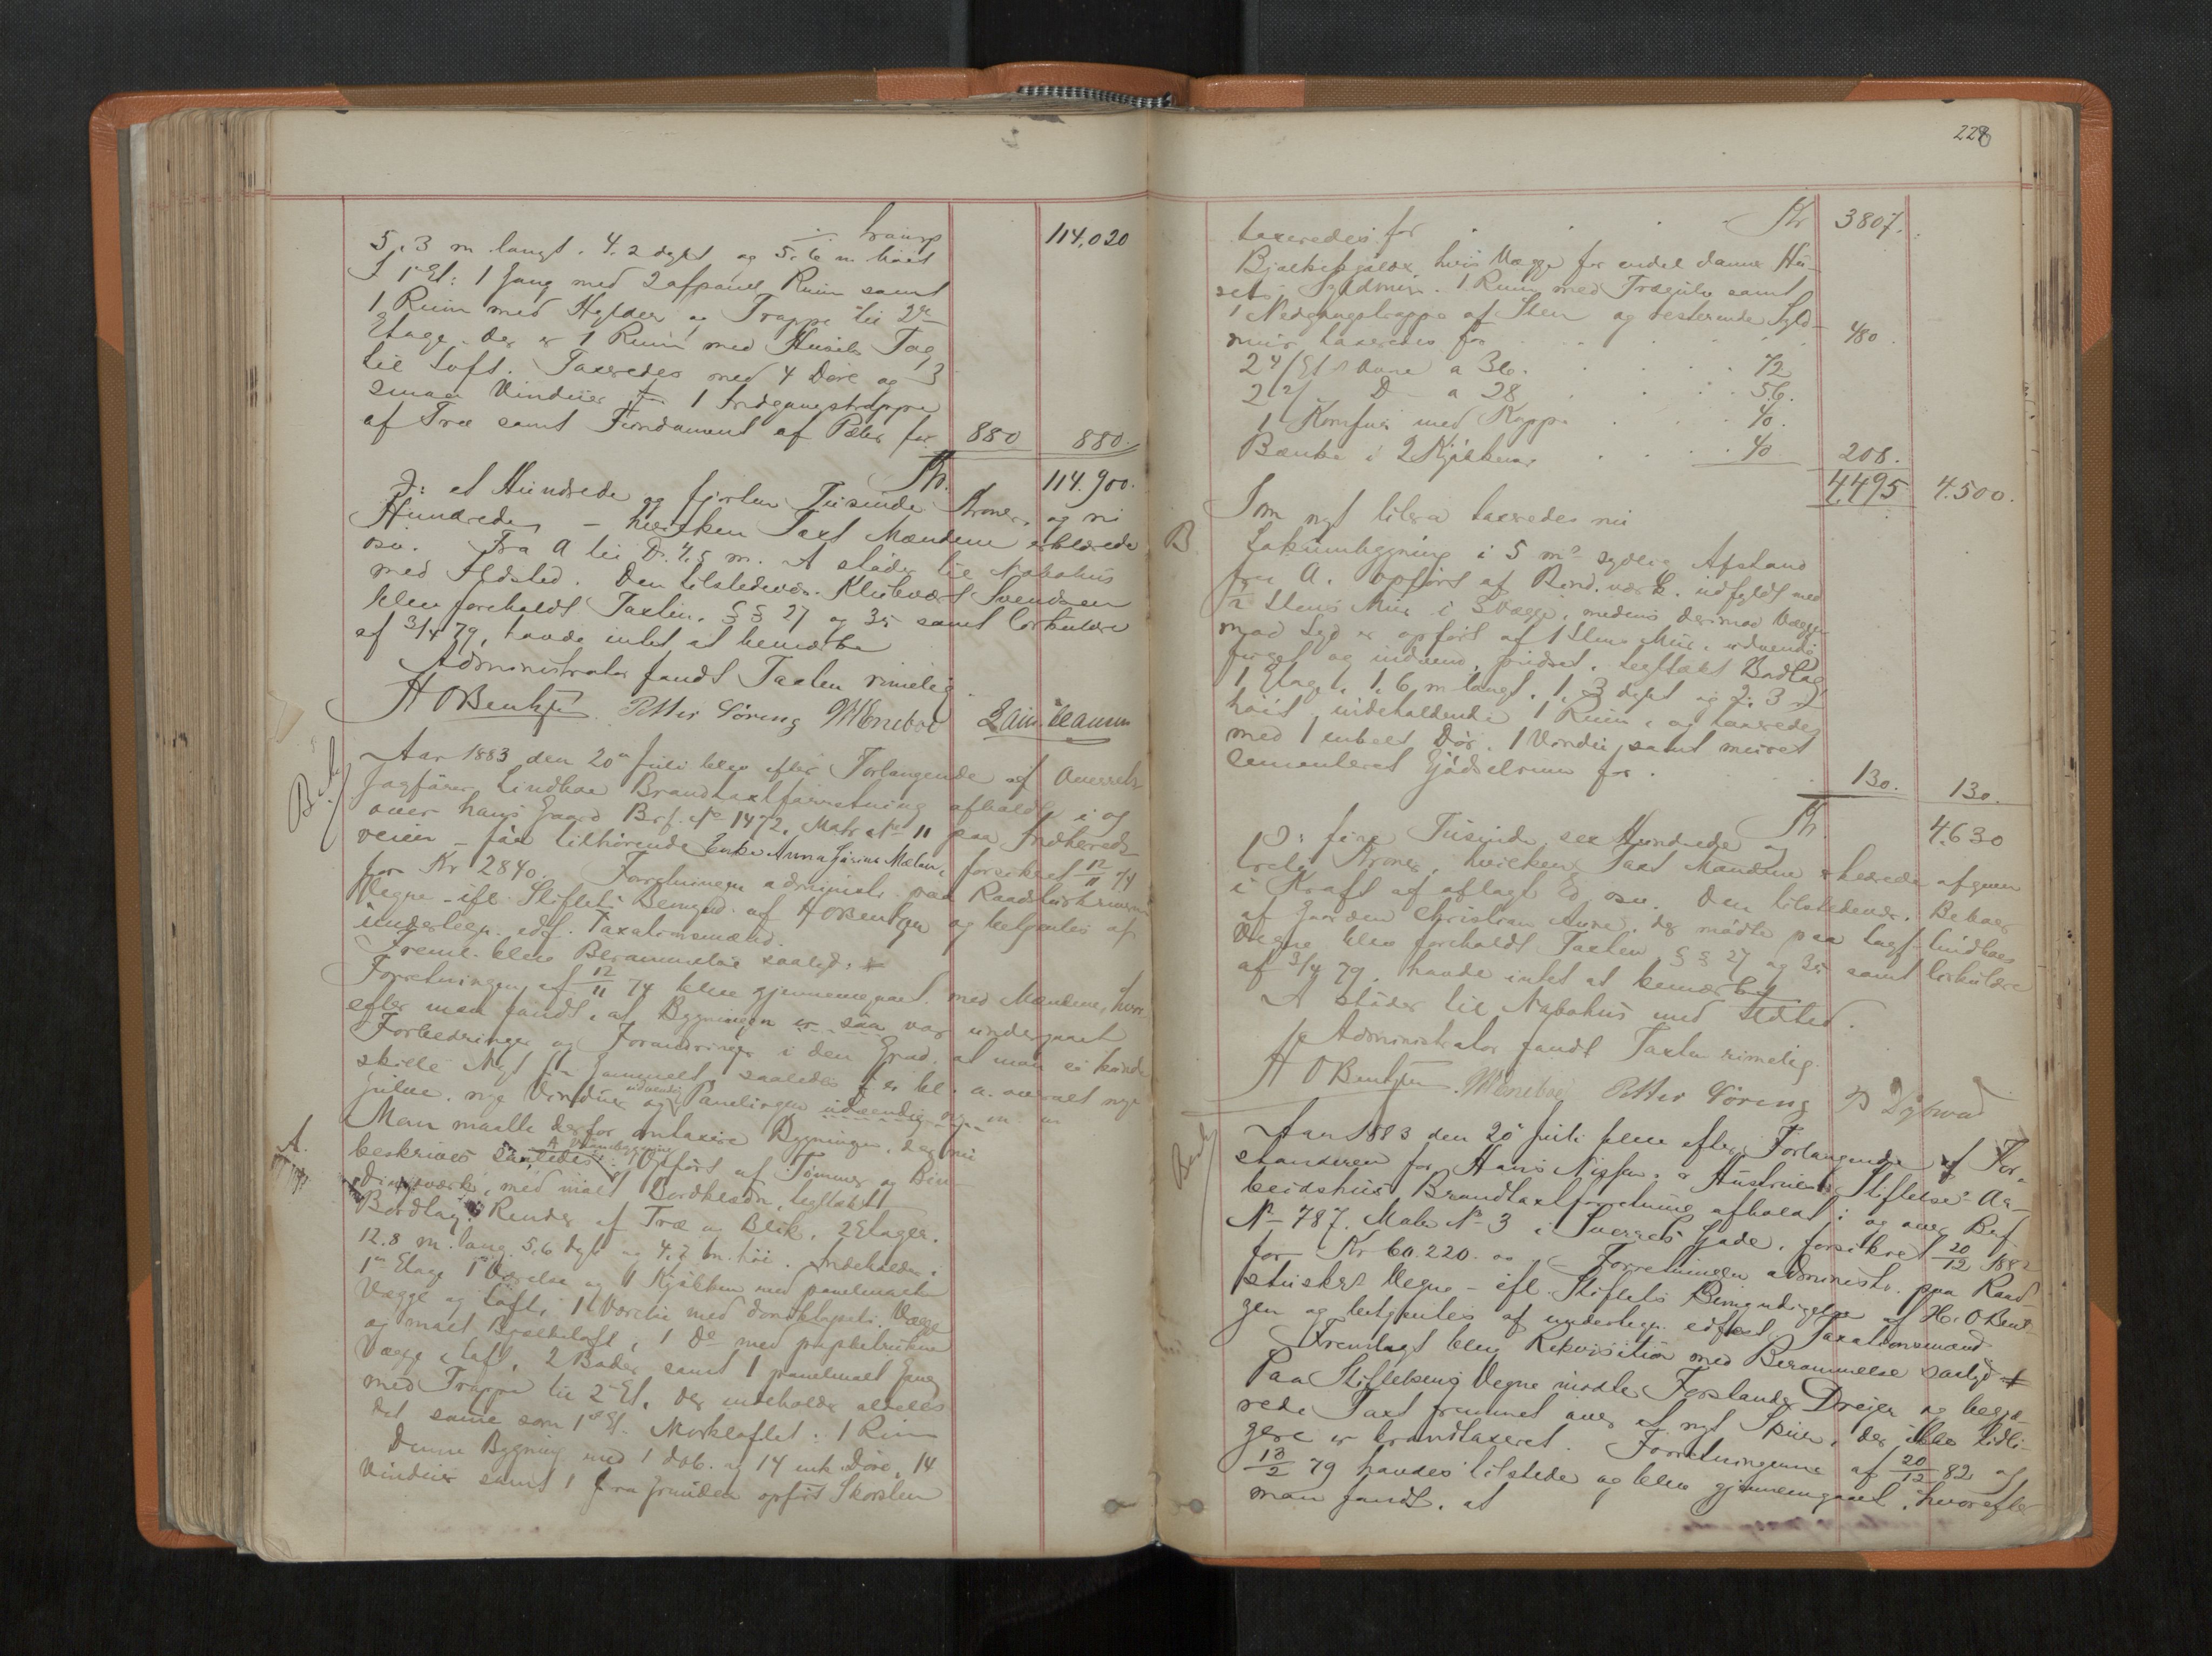 transp 114.020
5,3 m langt. 4.2 dybt og 5,6 m høit
I 1ste Et: 1 Gang med 2 afpanel. Rum samt
1 Rum med Hylder og Trappe til 2den
Etage. Der er 1 Rum med Husets Tag
til Loft. Taxeredes med 4 Døre og 3
smaa Vinduer 1 Indgangstrappe
af Træ samt Fundament af Pæler for 880 880.
Kr. 114.900.
ɔ: et Hundrede og fjorten Tusinde Kroner og ni
Hundrede – hvilken Taxt Mændene erklærede
osv. Fra A til D. 7,5 m. A støder til Nabohus
med Ildsted. Den tilstedevær. Klubvært Svendsen
blev foreholdt Taxtln. §§ 27 og 35 samt Cirkulære
af 3/4 79, havde intet at bemærke
Administrator fandt Taxten rimelig.
H O Bentzen Petter Söreng
Aar 1883 den 20de Juli blev efter Forlangende af Overrets
sagfører Lindboe Brandtaxtforretning afholdt i og
over hans Gaard Brf. No 1472, Matr No 11 paa Indhereds
veien – før tilhørende Enke Anna Mælan, forsikret 12/11 74
for Kr 2840. Forretningen administr. paa Raadstuskriverens
Vegne – ifl. Stiftets Bemynd. af H O Bentzen og betjentes af
underlegn. edf. Taxationsmænd.
Freml. blev Berammelse saalyd:
Forretningen af 12/11 74 blev gjennemgaaet med Mændene, hvor
efter man fandt, at Bygningen er saa var undergaaet
Forbedringer og Forandringer i den Grad, at man ei kunde
skille Nyt fra Gammelt, saaledes er bl. a. overalt nye
Gulve, nye Vinduer og udvendig Panelingen udvendig ny m. m
Man maatte derfor omtaxere Bygningen, der nu
A.
beskrives saaledes: A Vaaningsbygning Opført af Tømmer og Bin
dingsværk, med malt Bordklædn, teglstækt
Bordtag. Render af Træ og Blik. 2 Etager.
12.8 m. lang. 5,6 dyb og 4,7 m. høi. Indeholder i
1ste Etage 1 Værelse og 1 Kjøkken med panelmalte
Vægge og Loft, 1 Værelse med tapets. Vægge
og malt Brædeloft, 1 Do med papbetrukne
Vægge & Loft, 2 Boder samt 1 panelmalt Gang
med Trappe til 2den Et, der indeholder aldeles
det samme som 1ste Et. Mørkloftet: 1 Rum
Denne Bygning med 1 dob. og 14 enk. Døre, 14
Vinduer samt 1 fra Grunden opført Skorsten
228
taxeredes for Kr 3807.
Bjælkekjælder, hvis Vægge for endel danner Hu-
sets Syldmur. 1 Rum med Trægulv samt
1 Nedgangstrappe af Sten og resterende Syld-
mur taxeredes for 480.
2 4/Et s Ovne a 36. 72
2 2/ Do a 28 56.
1 Komfur med Kappe 40.
Bænke i 2 Kjøkkener 40 208.
4495 4.500.
Som nyt litera taxeredes nu
B. Lokumbygning i 5 m's sydlig Afstand
fra A. Opført af Bind.værk, udfyldt med
1/2 Stens Mur i 3 Vægge, medens derimod Væggen
mod Syd er opført af 1 Stens Mur, udvendig
farget og indvend. pudset, teglstækt Bordtag
1 Etage, 1,6 m langt, 1,3 dybt og 2,3 m
høit, indeholdende 1 Rum, og taxeredes
med 1 enkelt Dør. 1 Vindu, samt muret
cementeret Gjødselrum for 130. 130.
Kr. 4.630
ɔ: fire Tusinde sex Hundrede og
tredv Kroner, hvilken Taxt Mændene erklærede afgiven
i Kraft af aflagt Ed osv. Den tilstedevær. Beboer
af Gaarden Christian Aune, der mødte paa Sagf. Lindboes
Vegne blev foreholdt Taxtln §§ 27 og 35 samt Cirkulære
af 3/4 79, havde intet at bemærke
A støder til Nabohus med Ildsted.
Administrator fandt Taxten rimelig.
H O Bentzen Petter Söreng
Aar 1883 den 20 Juli blev efter Forlangende af For-
standeren for Hans Nissen & Hustrues Stiftelse's Ar-
beidshus Brandtaxtforretning afholdt i og over Brf
No 787. Matr No 3 i Sverres Gade, forsikret 20/12 1882
for Kr 60.220. Forretningen administr. paa Raad-
stuskr Vegne – ifl. Stiftets Bemyndigelse af H. O Bent-
zen og betjentes af underlegn. edfæst. Taxationsmænd
Fremlagt blev Rekvisition med Berammelse saalyd
Paa Stiftelsens Vegne mødte Forstander Dreyer og begjæ-
rede Taxt fremmet over et nyt Skur, der ikke tidli-
gere er brandtaxeret. Forretningerne af 20/12 82 og
13/2 79 havdes tilstede og blev gjennemgaaet, hvorefter
man fandt, at